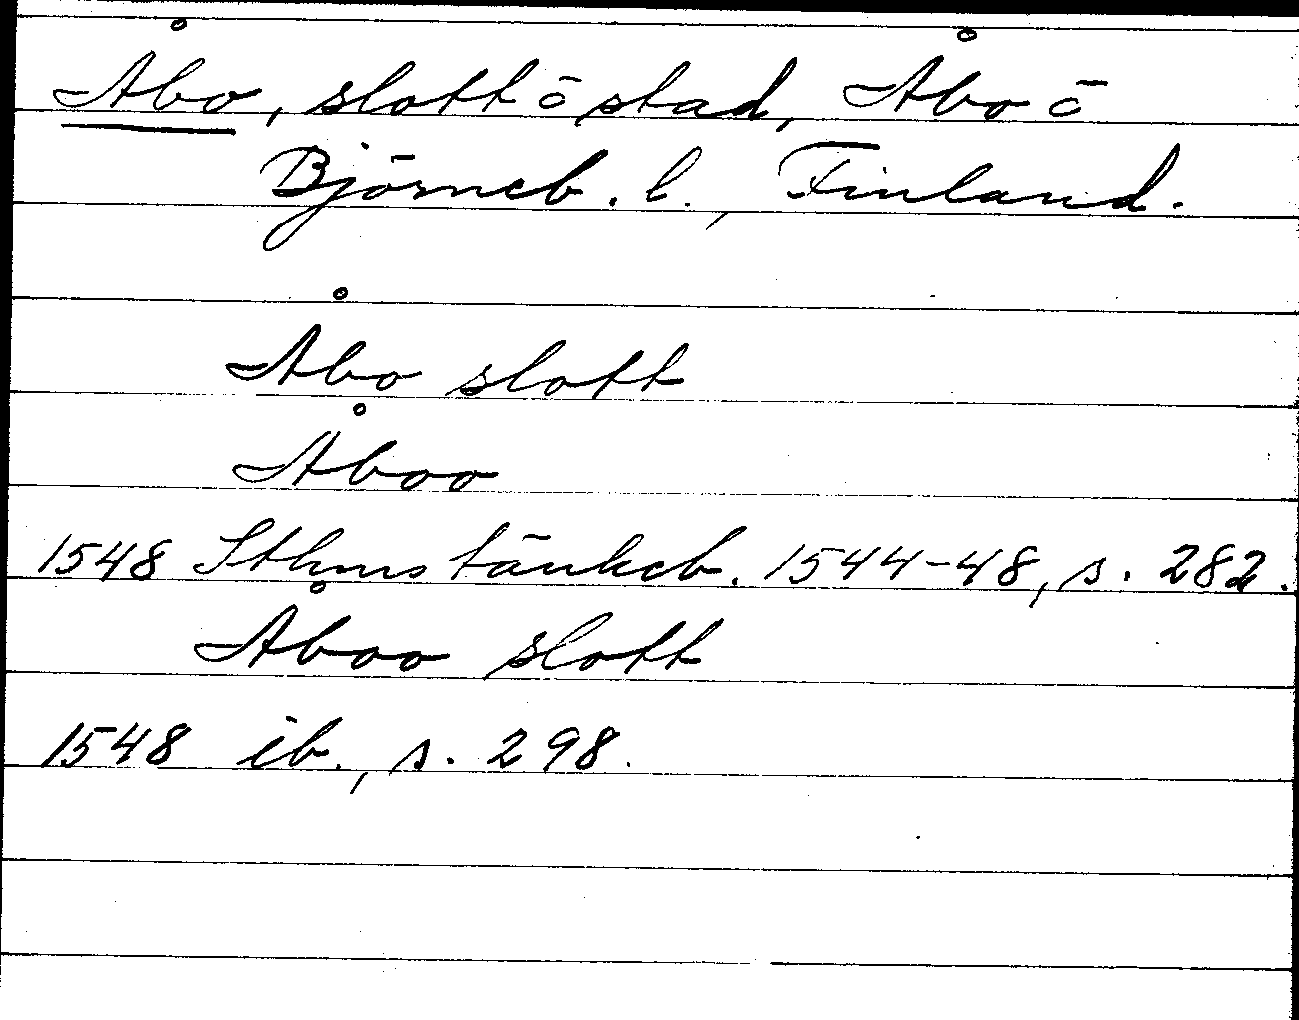 Åbo, slott ō stad, Åbo ō
Björneb. l., Finland.
Åbo slott
Åboo
1548 Sthms tänkeb. 1544-48, s. 282.
Åboo slott
1548 ib., s. 298.